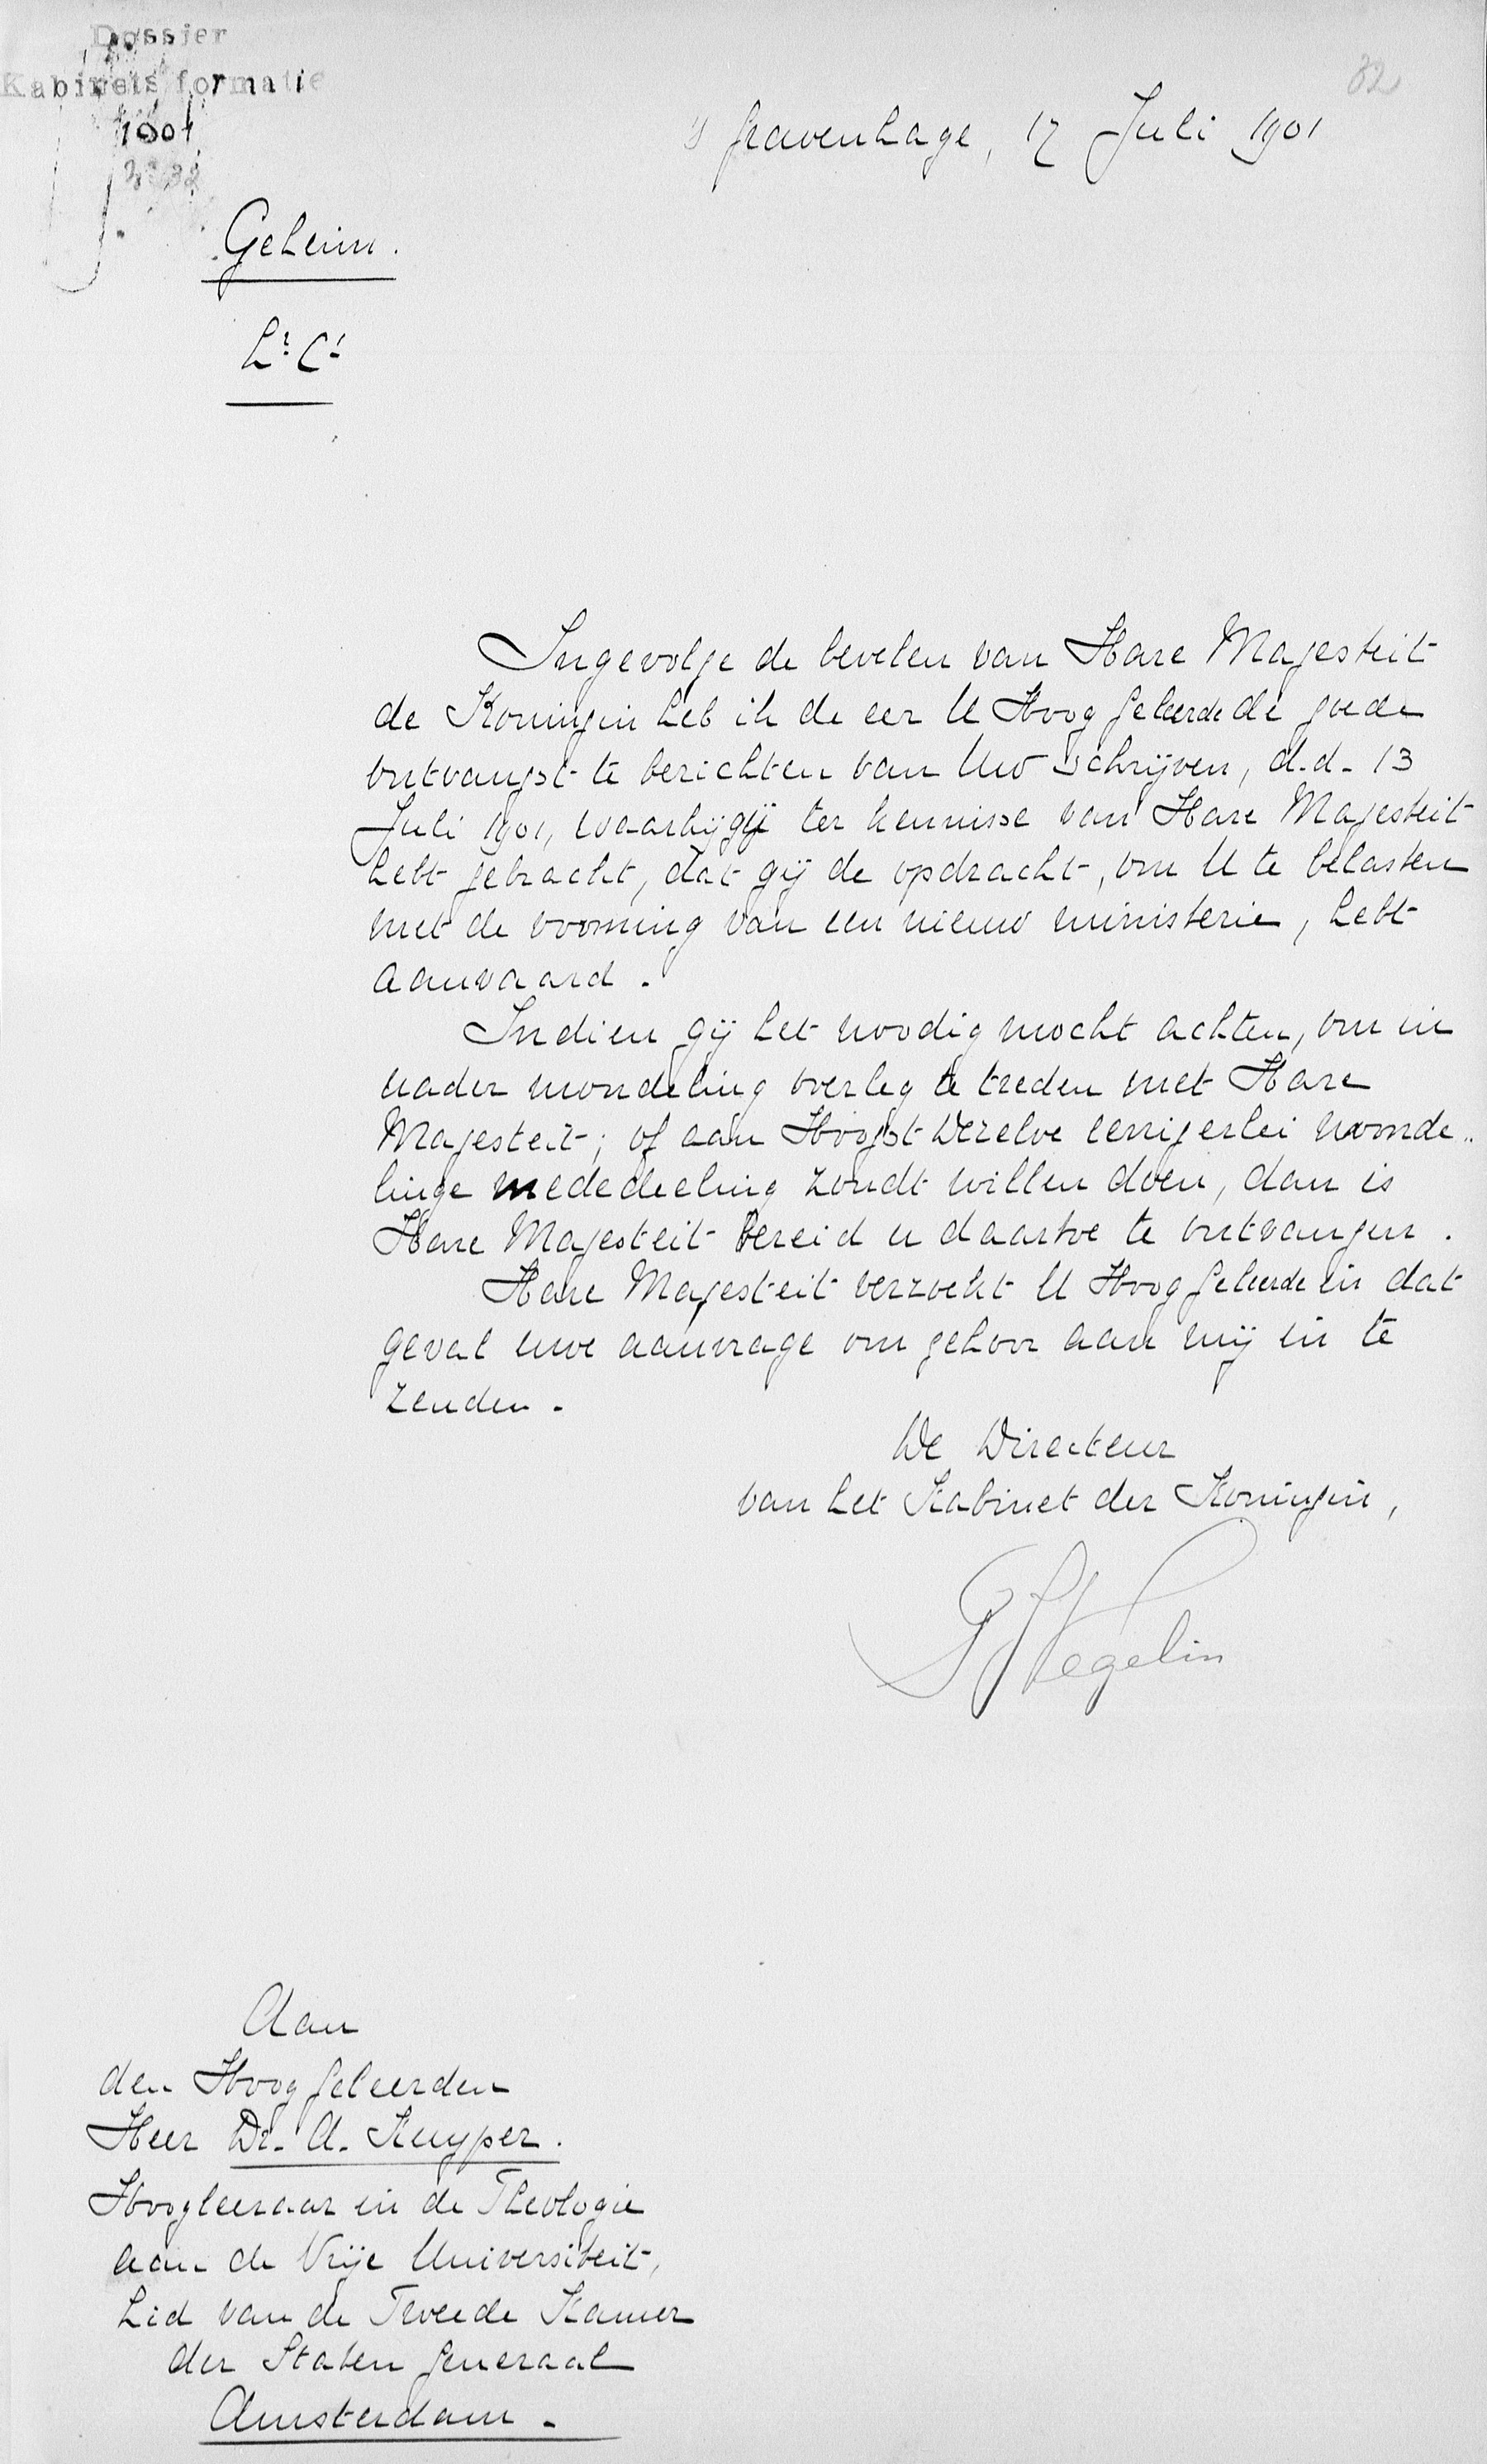 Dossier
Kabinetsformatie
1901
82
's Gravenhage, 17 Juli 1901
Geheim.
Lr. C1
Ingevolge de bevelen van Hare Majesteit
de Koningin heb ik de eer U HoogGeleerde de goede
ontvangst te berichten van Uw schrijven, d.d. 13
Juli 1901, waarbij gij ter kennisse van Hare Majesteit
hebt gebracht, dat gij de opdracht, om U te belasten
met de vorming van een nieuw ministerie, hebt
aanvaard.
Indien gij het noodig mocht achten, om in
nader mondeling overleg te treden met Hare
Majesteit, of aan Hoogst Dezelve eenigerlei monde„
linge mededeeling zoudt willen doen, dan is
Hare Majesteit bereid u daartoe te ontvangen.
Hare Majesteit verzoekt U HoogGeleerde in dat
geval uwe aanvrage om gehoor aan mij in te
zenden.
De Directeur
van het Kabinet der Koningin,
PJ Vegelin
Aan
den HoogGeleerden
Heer Dr. A. Kuyper.
Hoogleeraar in de Theologie
aan de Vrije Universiteit,
Lid van de Tweede Kamer
der Staten Generaal
Amsterdam.